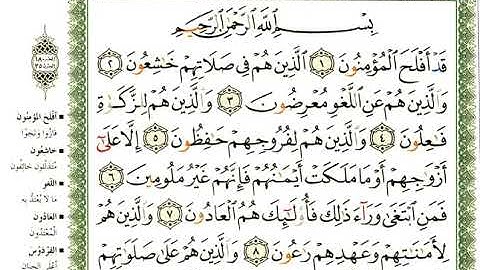 بِسْمِ اللَّهِ الرَّحْمَٰنِ الرَّحِيمِ
قَدْ أَفْلَحَ الْمُؤْمِنُونَ ١ الَّذِينَ هُمْ فِي صَلَاتِهِمْ خَاشِعُونَ ٢
وَالَّذِينَ هُمْ عَنِ اللَّغْوِ مُعْرِضُونَ ٣ وَالَّذِينَ هُمْ لِلزَّكَاةِ
فَاعِلُونَ ٤ وَالَّذِينَ هُمْ لِفُرُوجِهِمْ حَافِظُونَ ٥ إِلَّا عَلَىٰ
أَزْوَاجِهِمْ أَوْ مَا مَلَكَتْ أَيْمَانُهُمْ فَإِنَّهُمْ غَيْرُ مَلُومِينَ ٦
فَمَنِ ابْتَغَىٰ وَرَاءَ ذَٰلِكَ فَأُولَٰئِكَ هُمُ الْعَادُونَ ٧ وَالَّذِينَ هُمْ
لِأَمَانَاتِهِمْ وَعَهْدِهِمْ رَاعُونَ ٨ وَالَّذِينَ هُمْ عَلَىٰ صَلَوَاتِهِمْ
أَفْلَحَ المُؤْمِنُون
فَازُوا وَنَجَوْا
خَاشِعُون
مُتَذَلِّلُون خَائِفُون
اللَّغْو
مَا لَا يُعْتَدُّ به
العَادُون
الْمُعْتَدُون
الفِرْدَوْس
أَعْلَى الجِنَان